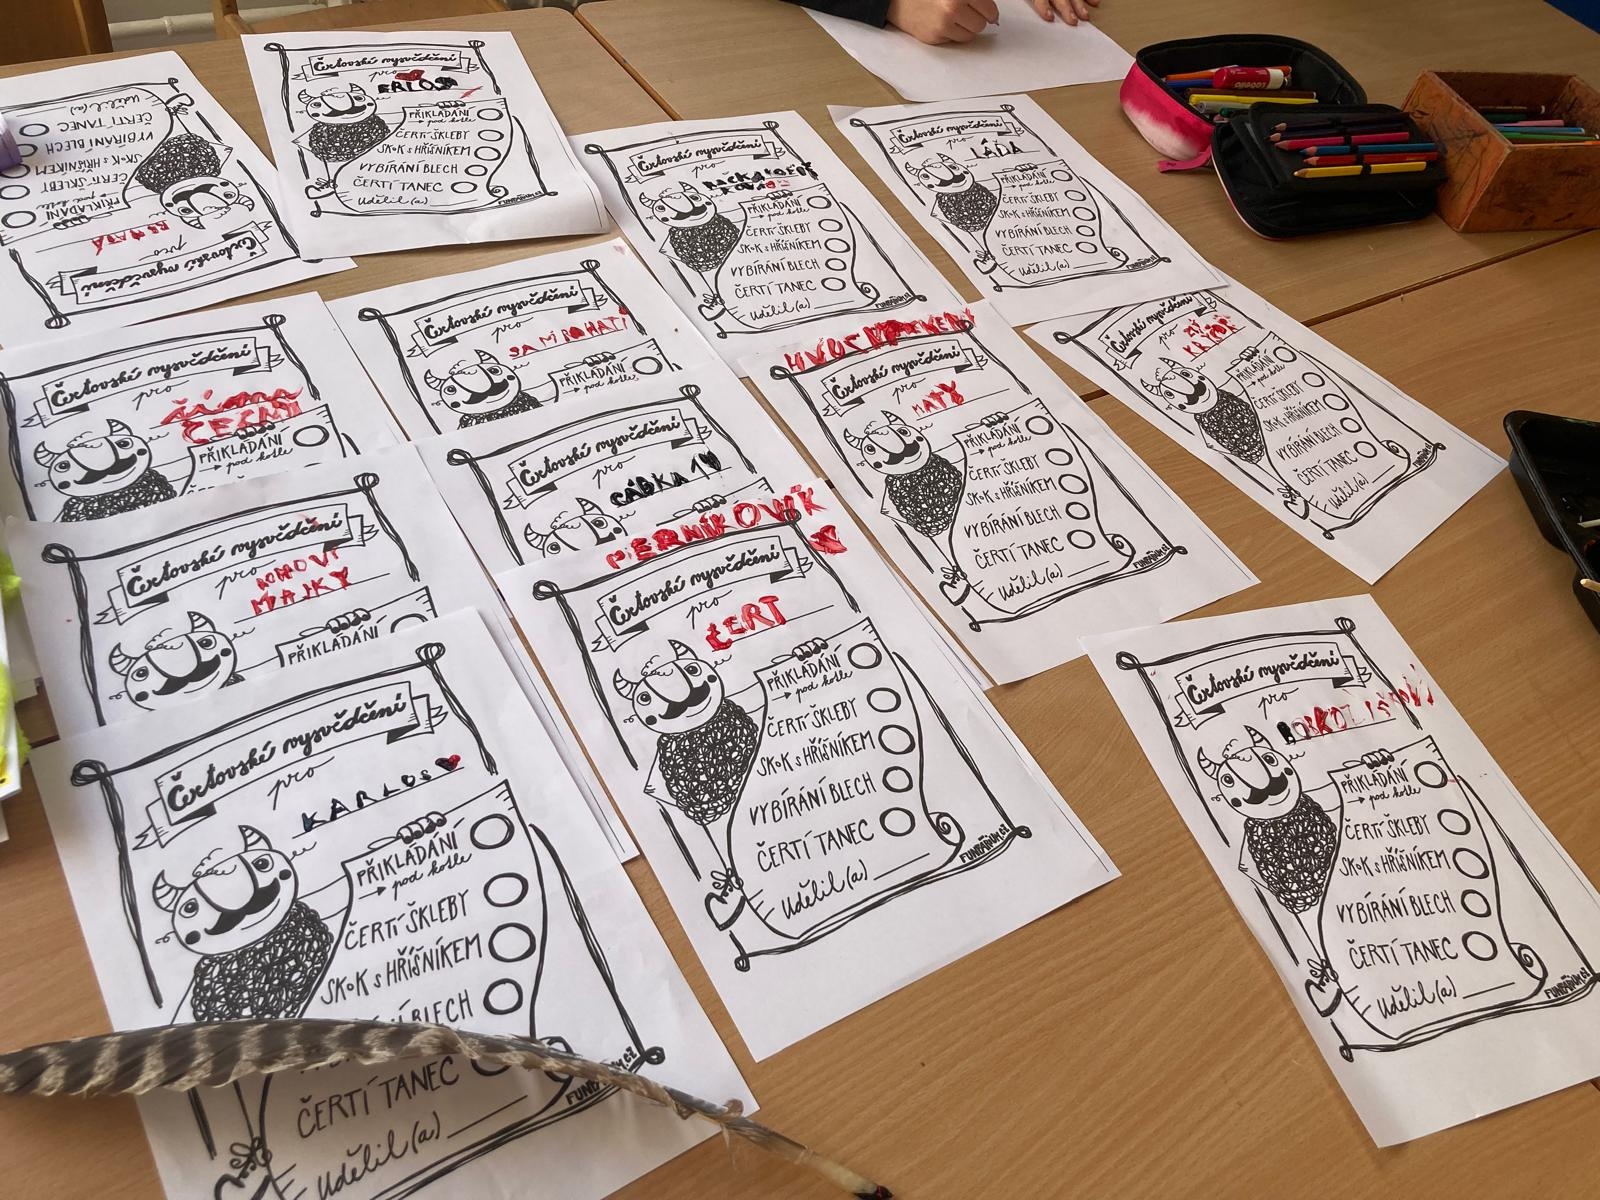 Čertovské vysvědčení
pro
PŘIKLÁDÁNÍ
pod kotle
ČERTÍ ŠKLEBY
SKoK s HŘÍŠNÍKEM
VYBÍRÁNÍ BLECH
ČERTÍ TANEC
Udělil(a)
Čertovské vysvědčení
pro
PŘIKLÁDÁNÍ
ČERTÍ ŠKLEBY
SKoK s HŘÍŠNÍKEM
VYBÍRÁNÍ BLECH
ČERTÍ TANEC
Udělil(a)
FUNPÁDUM.CZ
Čertovské vysvědčení
pro
PŘIKLÁDÁNÍ
pod kotle
ČERTÍ ŠKLEBY
SKoK s HŘÍŠNÍKEM
VYBÍRÁNÍ BLECH
ČERTÍ TANEC
Udělil(a)
Čertovské vysvědčení
pro
LÁĎA
PŘIKLÁDÁNÍ
ČERTÍ ŠKLEBY
SKoK s HŘÍŠNÍKEM
VYBÍRÁNÍ BLECH
ČERTÍ TANEC
Udělil(a)
Čertovské vysvědčení
pro
ČERTI
PŘIKLÁDÁNÍ
pod kotle
Čertovské vysvědčení
pro
PŘIKLÁDÁNÍ
pod kotle
Čertovské vysvědčení
pro
MATY
PŘIKLÁDÁNÍ
pod kotle
ČERTÍ ŠKLEBY
SKoK s HŘÍŠNÍKEM
VYBÍRÁNÍ BLECH
ČERTÍ TANEC
Udělil(a)
Čertovské vysvědčení
pro
PŘIKLÁDÁNÍ
pod kotle
ČERTÍ ŠKLEBY
SKoK s HŘÍŠNÍKEM
VYBÍRÁNÍ BLECH
ČERTÍ TANEC
Udělil(a)
Čertovské vysvědčení
pro
MAJKY
PŘIKLÁDÁNÍ
Čertovské vysvědčení
pro
PERNÍKOVÍK
Čertovské vysvědčení
pro
ČERT
PŘIKLÁDÁNÍ
pod kotle
ČERTÍ ŠKLEBY
SKoK s HŘÍŠNÍKEM
VYBÍRÁNÍ BLECH
ČERTÍ TANEC
Udělil(a)
Čertovské vysvědčení
pro
KARLOS
PŘIKLÁDÁNÍ
pod kotle
ČERTÍ ŠKLEBY
SKoK s HŘÍŠNÍKEM
BLECH
ČERTÍ TANEC
Udělil(a)
Čertovské vysvědčení
pro
PŘIKLÁDÁNÍ
pod kotle
ČERTÍ ŠKLEBY
SKoK s HŘÍŠNÍKEM
VYBÍRÁNÍ BLECH
ČERTÍ TANEC
Udělil(a)